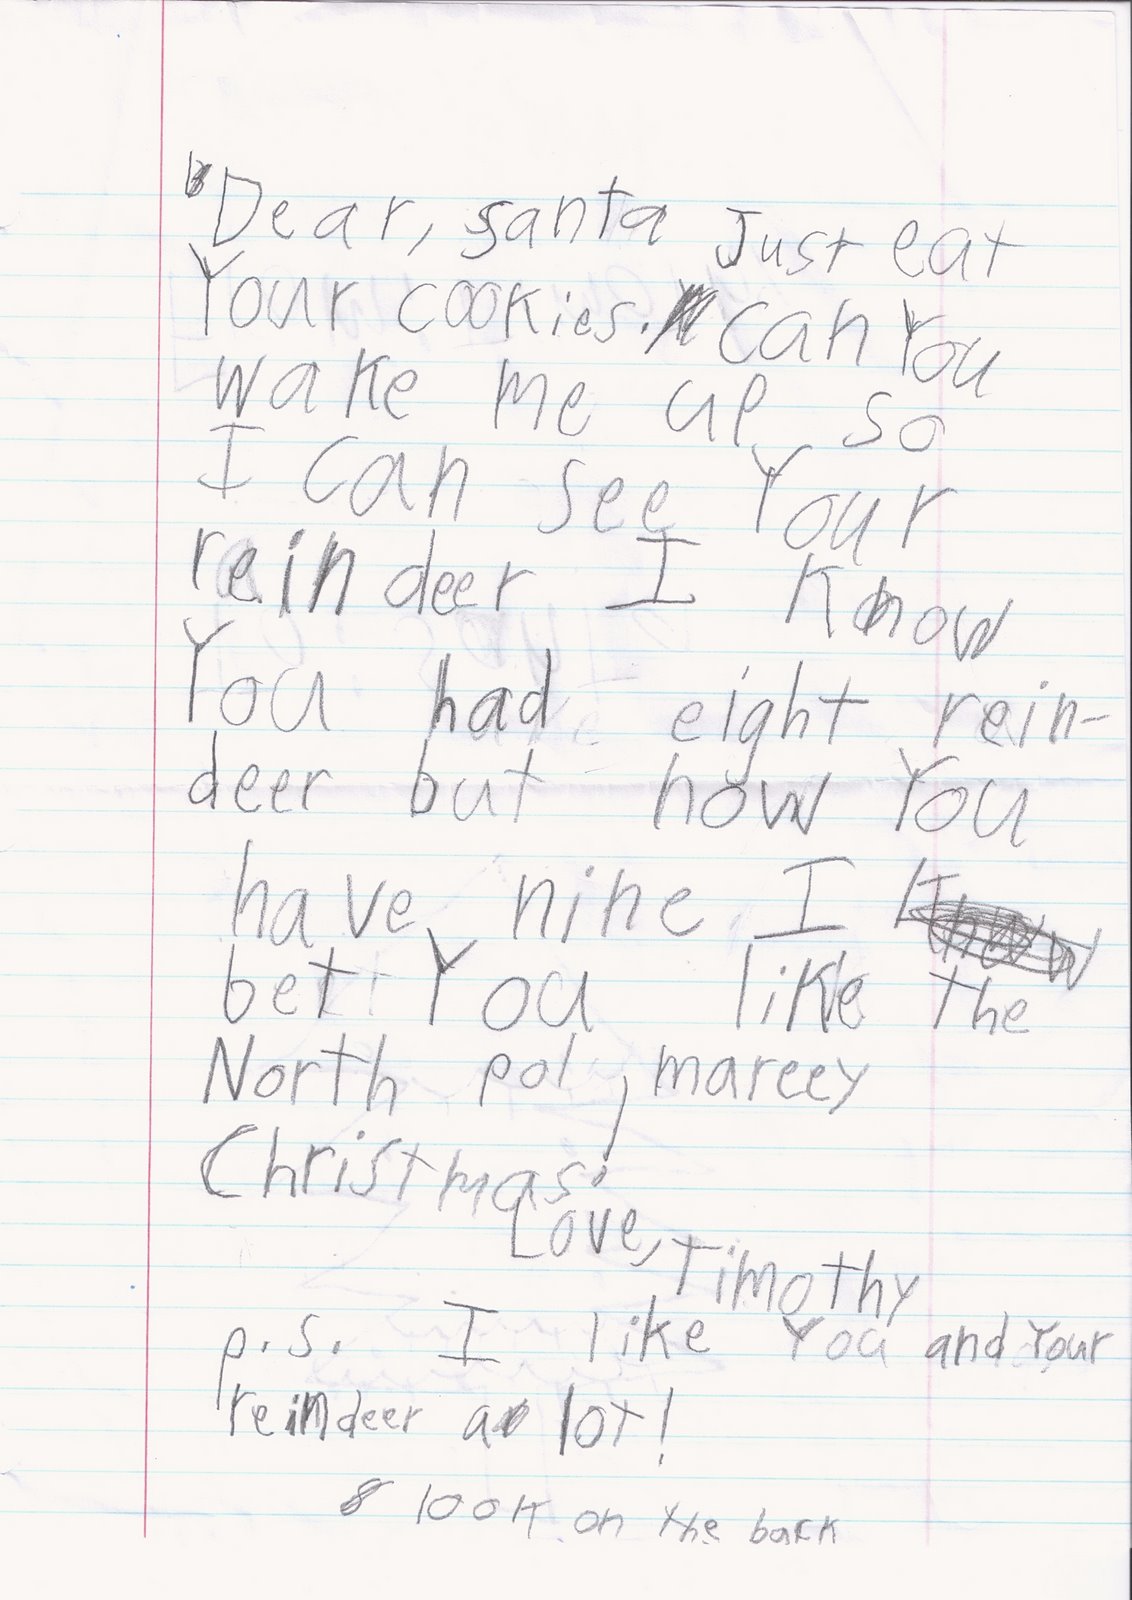 Dear, santa Just eat
Your cookies. can You
wake me up so
I can see Your
reindeer I Know
You had eight rein-
deer but now You
have nine I Know
bet You like the
North pol, mareey
Christmas.
Love, Timothy
p.s. I like You and Your
reindeer a lot!
look on the back